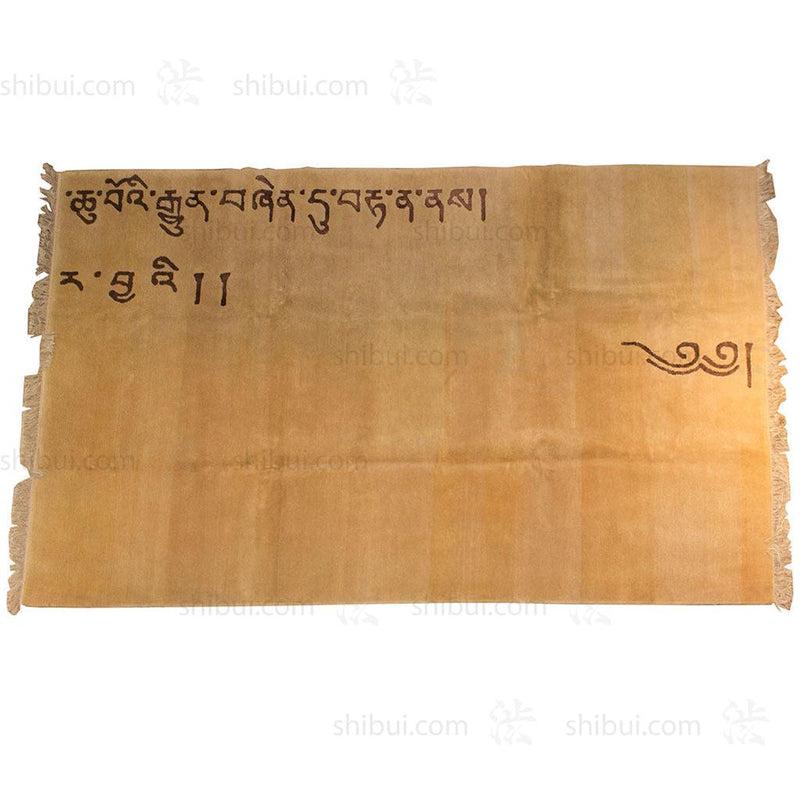 shibui.com 法 shibui.com 法
་ཆུ་བོའི་རྒྱུན་བཞེན་དུ་བརྟ་ན་ནས།
shibui.com shibui.com
ར་བྱ་འི། །
༄༅།
shibui.com shibui.com
shibui.com 法 shibui.com
shibui.com 法 shibui.com 法
shibui.com 法 shibui.com 法